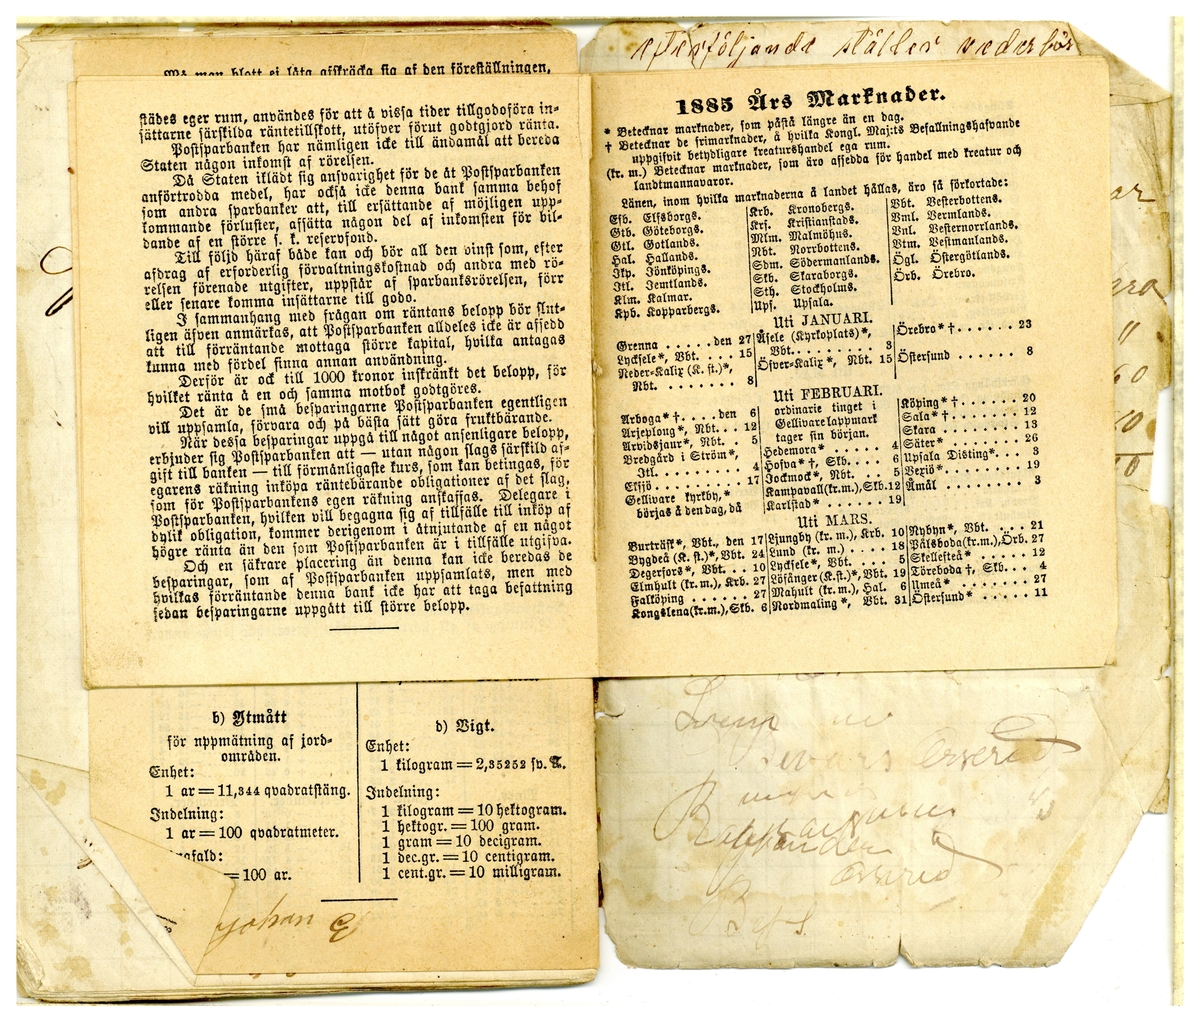 efterföljande ställer vederbör
Må man blott ej låta afskräcka sig af den föreställningen,
städes eger rum, användes för att å vissa tider tillgodoföra in-
sättarne särskilda räntetillskott, utöfver förut godtgjord ränta.
Postsparbanken har nämligen icke till ändamål att bereda
Staten någon inkomst af rörelsen.
Då Staten iklädt sig ansvarighet för de åt Postsparbanken
anförtrodda medel, har också icke denna bank samma behof
som andra sparbanker att, till ersättande af möjligen upp-
kommande förluster, afsätta någon del af inkomsten för bil-
dande af en större s. k. reservfond.
Till följd häraf både kan och bör all den vinst som, efter
afdrag af erforderlig förvaltningskostnad och andra med rö-
relsen förenade utgifter, uppstår af sparbanksrörelsen, förr
eller senare komma insättarne till godo.
I sammanhang med frågan om räntans belopp bör slut-
ligen äfven anmärkas, att Postsparbanken alldeles icke är afsedd
att till förräntande mottaga större kapital, hvilka antagas
kunna med fördel finna annan användning.
Derför är ock till 1000 kronor inskränkt det belopp, för
hvilket ränta å en och samma motbok godtgöres.
Det är de små besparingarne Postsparbanken egentligen
vill uppsamla, förvara och på bästa sätt göra fruktbärande.
När dessa besparingar uppgå till något ansenligare belopp,
erbjuder sig Postsparbanken att — utan någon slags särskild af-
gift till banken — till förmånligaste kurs, som kan betingas, för
egarens räkning inköpa räntebärande obligationer af det slag,
som för Postsparbankens egen räkning anskaffas. Delegare i
Postsparbanken, hvilken vill begagna sig af tillfälle till inköp af
dylik obligation, kommer derigenom i åtnjutande af en något
högre ränta än den som Postsparbanken är i tillfälle utgifva.
Och en säkrare placering än denna kan icke beredas de
besparingar, som af Postsparbanken uppsamlats, men med
hvilkas förräntande denna bank icke har att taga befattning
sedan besparingarne uppgått till större belopp.
1885 Års Marknader.
* Betecknar marknader, som påstå längre än en dag.
† Betecknar de frimarknader, å hvilka Kongl. Maj:ts Befallningshafvande
uppgifvit betydligare kreaturshandel ega rum.
(kr. m.) Betecknar marknader, som äro afsedda för handel med kreatur och
landtmannavaror.
Länen, inom hvilka marknaderna å landet hållas, äro så förkortade:
Elfb. Elfsborgs.
Gtb. Göteborgs.
Gtl. Gotlands.
Hal. Hallands.
Jkp. Jönköpings.
Jtl. Jemtlands.
Klm. Kalmar.
Kpb. Kopparbergs.
Krb. Kronobergs.
Krs. Kristianstads.
Mlm. Malmöhus.
Nbt. Norrbottens.
Sdm. Södermanlands.
Skb. Skaraborgs.
Sth. Stockholms.
Ups. Upsala.
Vbt. Vesterbottens.
Vml. Vermlands.
Vnl. Vesternorrlands.
Vtm. Vestmanlands.
Ögl. Östergötlands.
Örb. Örebro.
Uti JANUARI.
Grenna . . . . . den 27
Lycksele*, Vbt. . . . 15
Neder-Kalix (K. st.)*,
Nbt. . . . . . . . 8
Åsele (Kyrkoplats)*,
Vbt. . . . . . . . 3
Öfver-Kalix*, Nbt. 15
Örebro* † . . . . . . 23
Östersund . . . . . . 8
Uti FEBRUARI.
Arboga* †. . . . den 6
Arjeplong*, Nbt. . . 12
Arvidsjaur*, Nbt. . 5
Bredgård i Ström*,
Jtl. . . . . . . . 4
Eksjö . . . . . . . 17
Gellivare kyrkby,*
börjas å den dag, då
ordinarie tinget i
Gellivare lappmark
tager sin början.
Hedemora* . . . . . 4
Hofva* †, Skb. . . . 6
Jockmock*, Nbt. . . 5
Kampavall(kr.m), Skb.12
Karlstad* . . . . . 19
Köping* † . . . . . 20
Sala* † . . . . . . 12
Skara . . . . . . . 13
Säter* . . . . . . . 26
Upsala Disting*. . . 3
Vexiö* . . . . . . . 19
Åmål . . . . . . . . 3
Uti MARS.
Burträsk*, Vbt., den 17
Bygdeå (K. st.)*, Vbt. 24
Degerfors*, Vbt. . . 10
Elmhult (kr. m.), Krb. 27
Falköping . . . . . . 27
Kongslena(kr.m.), Skb. 6
Ljungby (kr. m.), Krb. 10
Lund (kr. m.) . . . . 18
Lycksele*, Vbt. . . . 5
Löfånger(K.st.)*, Vbt. 19
Mahult (kr. m.), Hal. 6
Nordmaling*, Vbt. 31
Nybyn*, Vbt. . . . 21
Pålsboda(kr.m.), Örb. 27
Skellefteå* . . . . . 12
Töreboda †, Skb. . . 4
Umeå* . . . . . . . 27
Östersund* . . . . . 11
b) Ytmått
för uppmätning af jord-
områden.
Enhet:
1 ar = 11,344 qvadratstäng.
Indelning:
1 ar = 100 qvadratmeter.
= 100 ar.
d) Vigt.
Enhet:
1 kilogram = 2,35252 sv. ℔.
Indelning:
1 kilogram = 10 hektogram.
1 hektogr. = 100 gram.
1 gram = 10 decigram.
1 dec.gr. = 10 centigram.
1 cent.gr. = 10 milligram.
Johan E